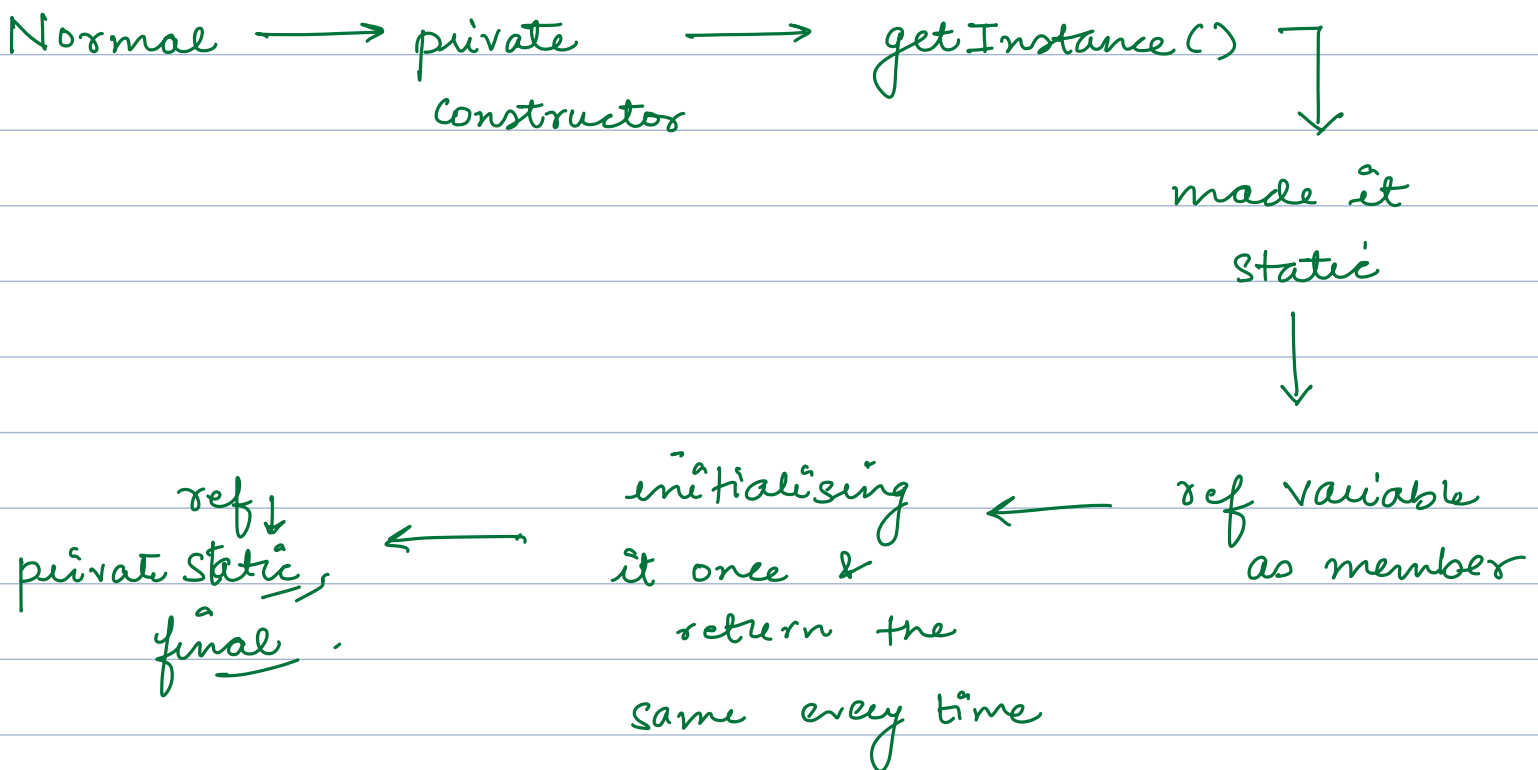 Normal → private → getInstance()
constructor
made it
static
ref variable
as member
initialising
it once &
return the
same every time
ref
private static,
final.